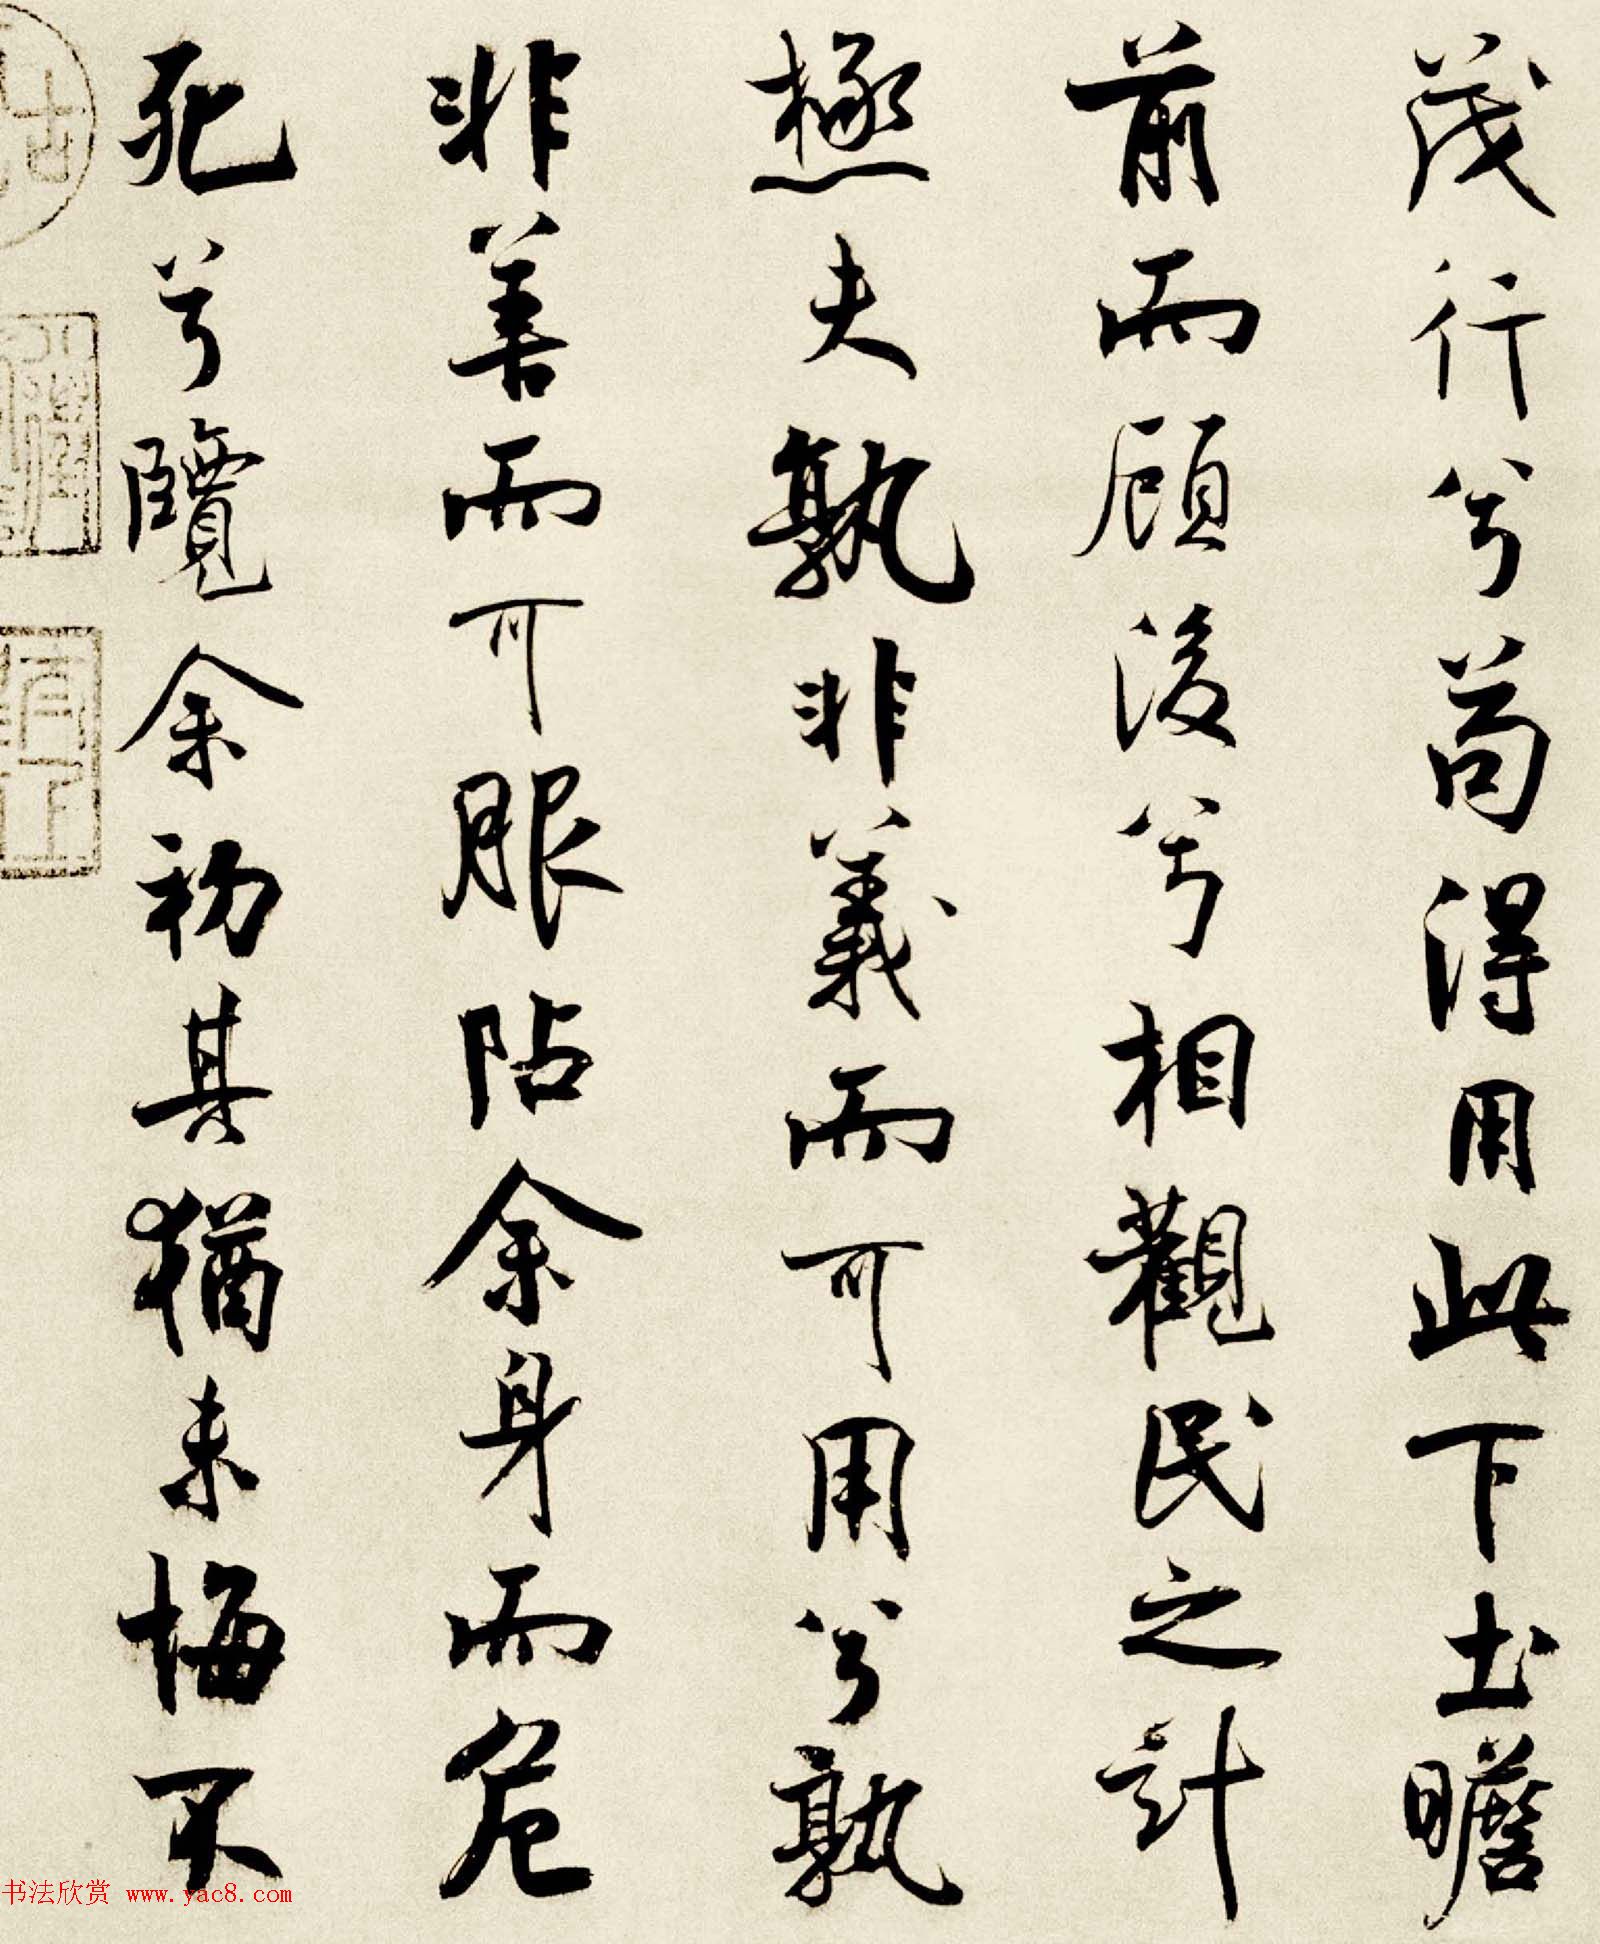 茂行兮苟得用此下土瞻
前而顧後兮相觀民之計
極夫孰非義而可用兮孰
非善而可服阽余身而危
死兮覽余初其猶未悔不
书法欣赏 www.yac8.com